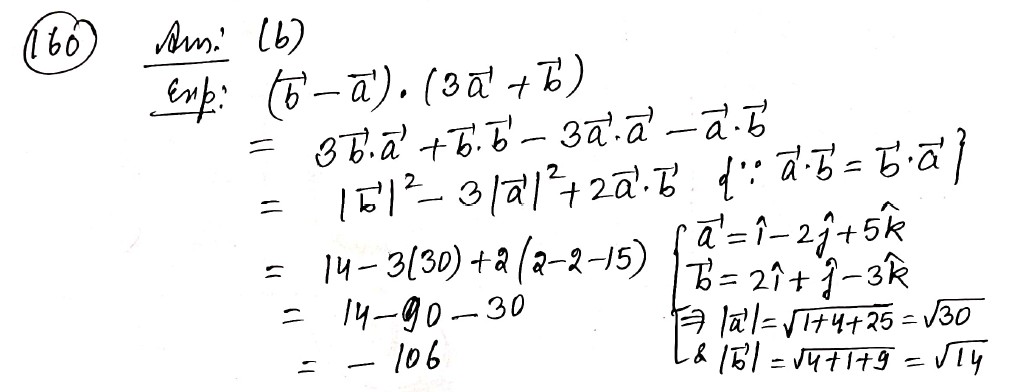 160 Ans: (b)
Exp: (b⃗ − a⃗) . (3a⃗ + b⃗)
= 3b⃗.a⃗ + b⃗.b⃗ − 3a⃗.a⃗ − a⃗.b⃗
= |b⃗|² − 3|a⃗|² + 2a⃗.b⃗ {∵ a⃗.b⃗ = b⃗.a⃗}
= 14 − 3(30) + 2(2−2−15)
= 14 − 90 − 30
= − 106
[ a⃗ = î − 2ĵ + 5k̂
b⃗ = 2î + ĵ − 3k̂
⇒ |a⃗| = √1+4+25 = √30
& |b⃗| = √4+1+9 = √14